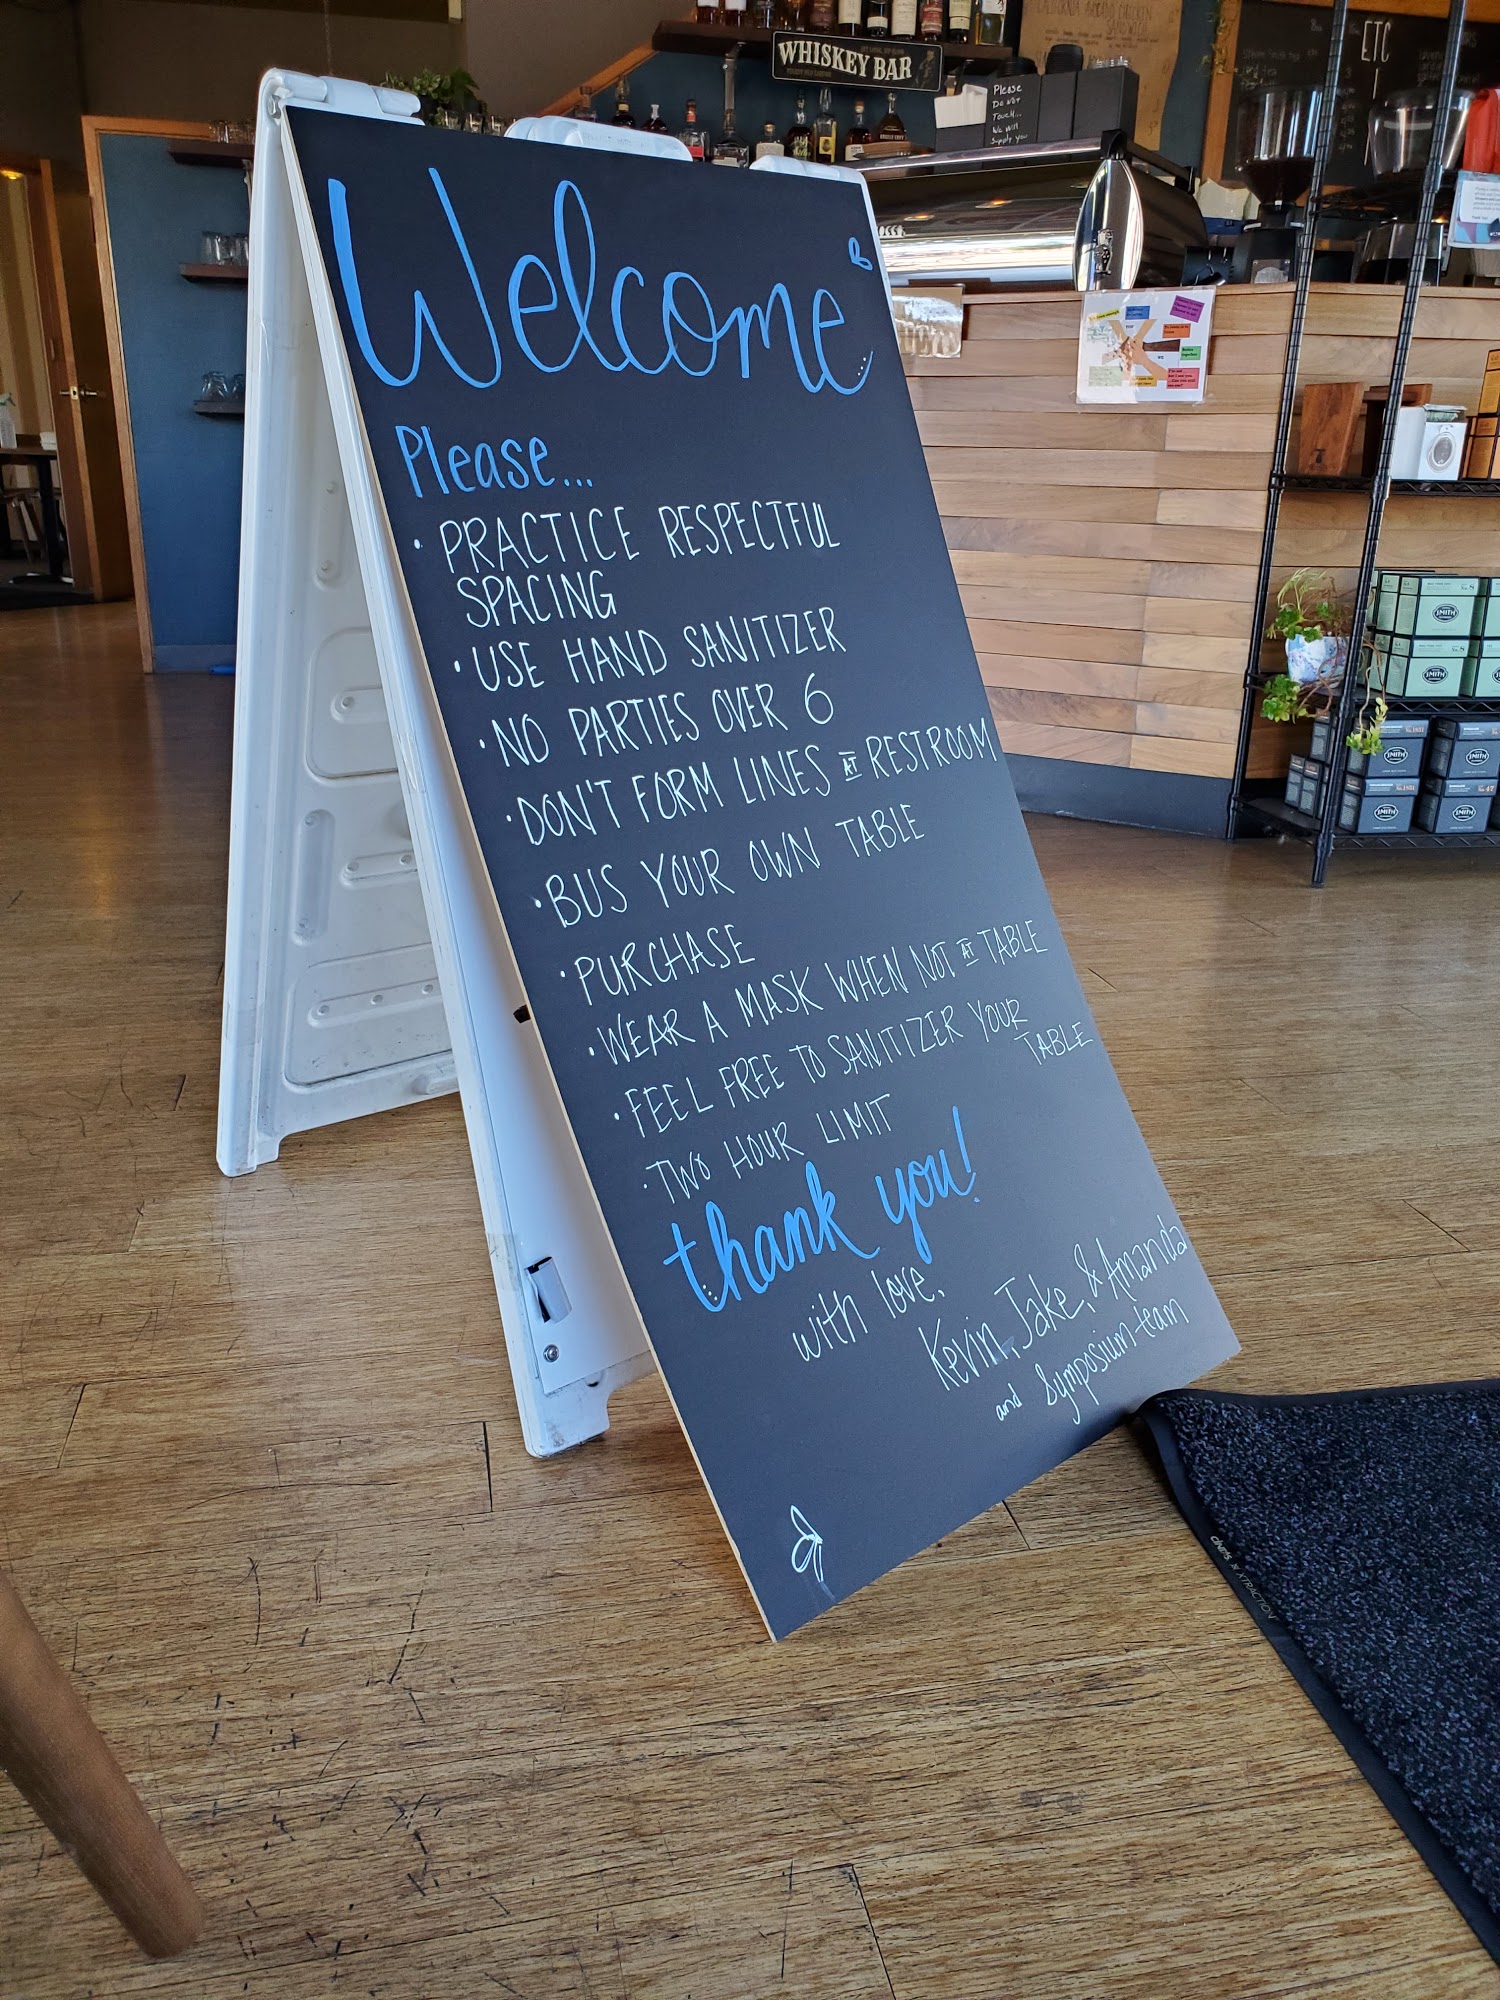 Welcome
Please...
• PRACTICE RESPECTFUL
SPACING
• USE HAND SANITIZER
• NO PARTIES OVER 6
• DON'T FORM LINES AT RESTROOM
• BUS YOUR OWN TABLE
• PURCHASE
• WEAR A MASK WHEN NOT AT TABLE
• FEEL FREE TO SANITIZER YOUR
TABLE
• TWO HOUR LIMIT
thank you!
with love,
Kevin, Jake, & Amanda
and Symposium team
WHISKEY BAR
Please
Do NOT
Touch...
We will
supply you
CALIFORNIA AVOCADO CHICKEN
SANDWICH
ETC
SMITH
SMITH
SMITH
SMITH
SMITH
SMITH
SMITH
XTRACTION